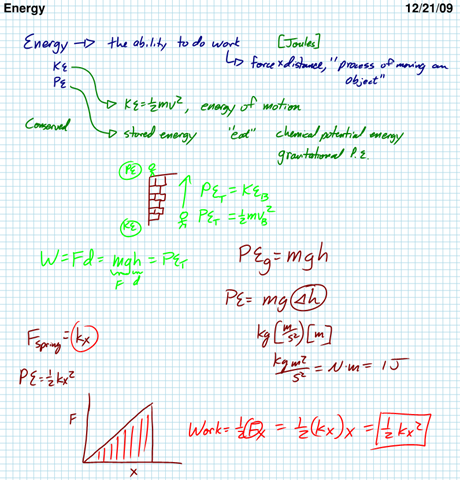 Energy 12/21/09
Energy → the ability to do work [Joules]
↳ force × distance, "process of moving an
object"
KE
PE
KE = ½mv², energy of motion
Conserved
stored energy "eat" chemical potential energy
gravtational P.E.
PE
PE_T = KE_B
KE
PE_T = ½mv_B²
W = Fd = mgh = PE_T
F d
PE_g = mgh
PE = mg Δh
kg [m/s²] [m]
kg m²/s² = N·m = 1J
F_spring = kx
PE = ½kx²
F
x
Work = ½Fx = ½(kx)x = ½kx²